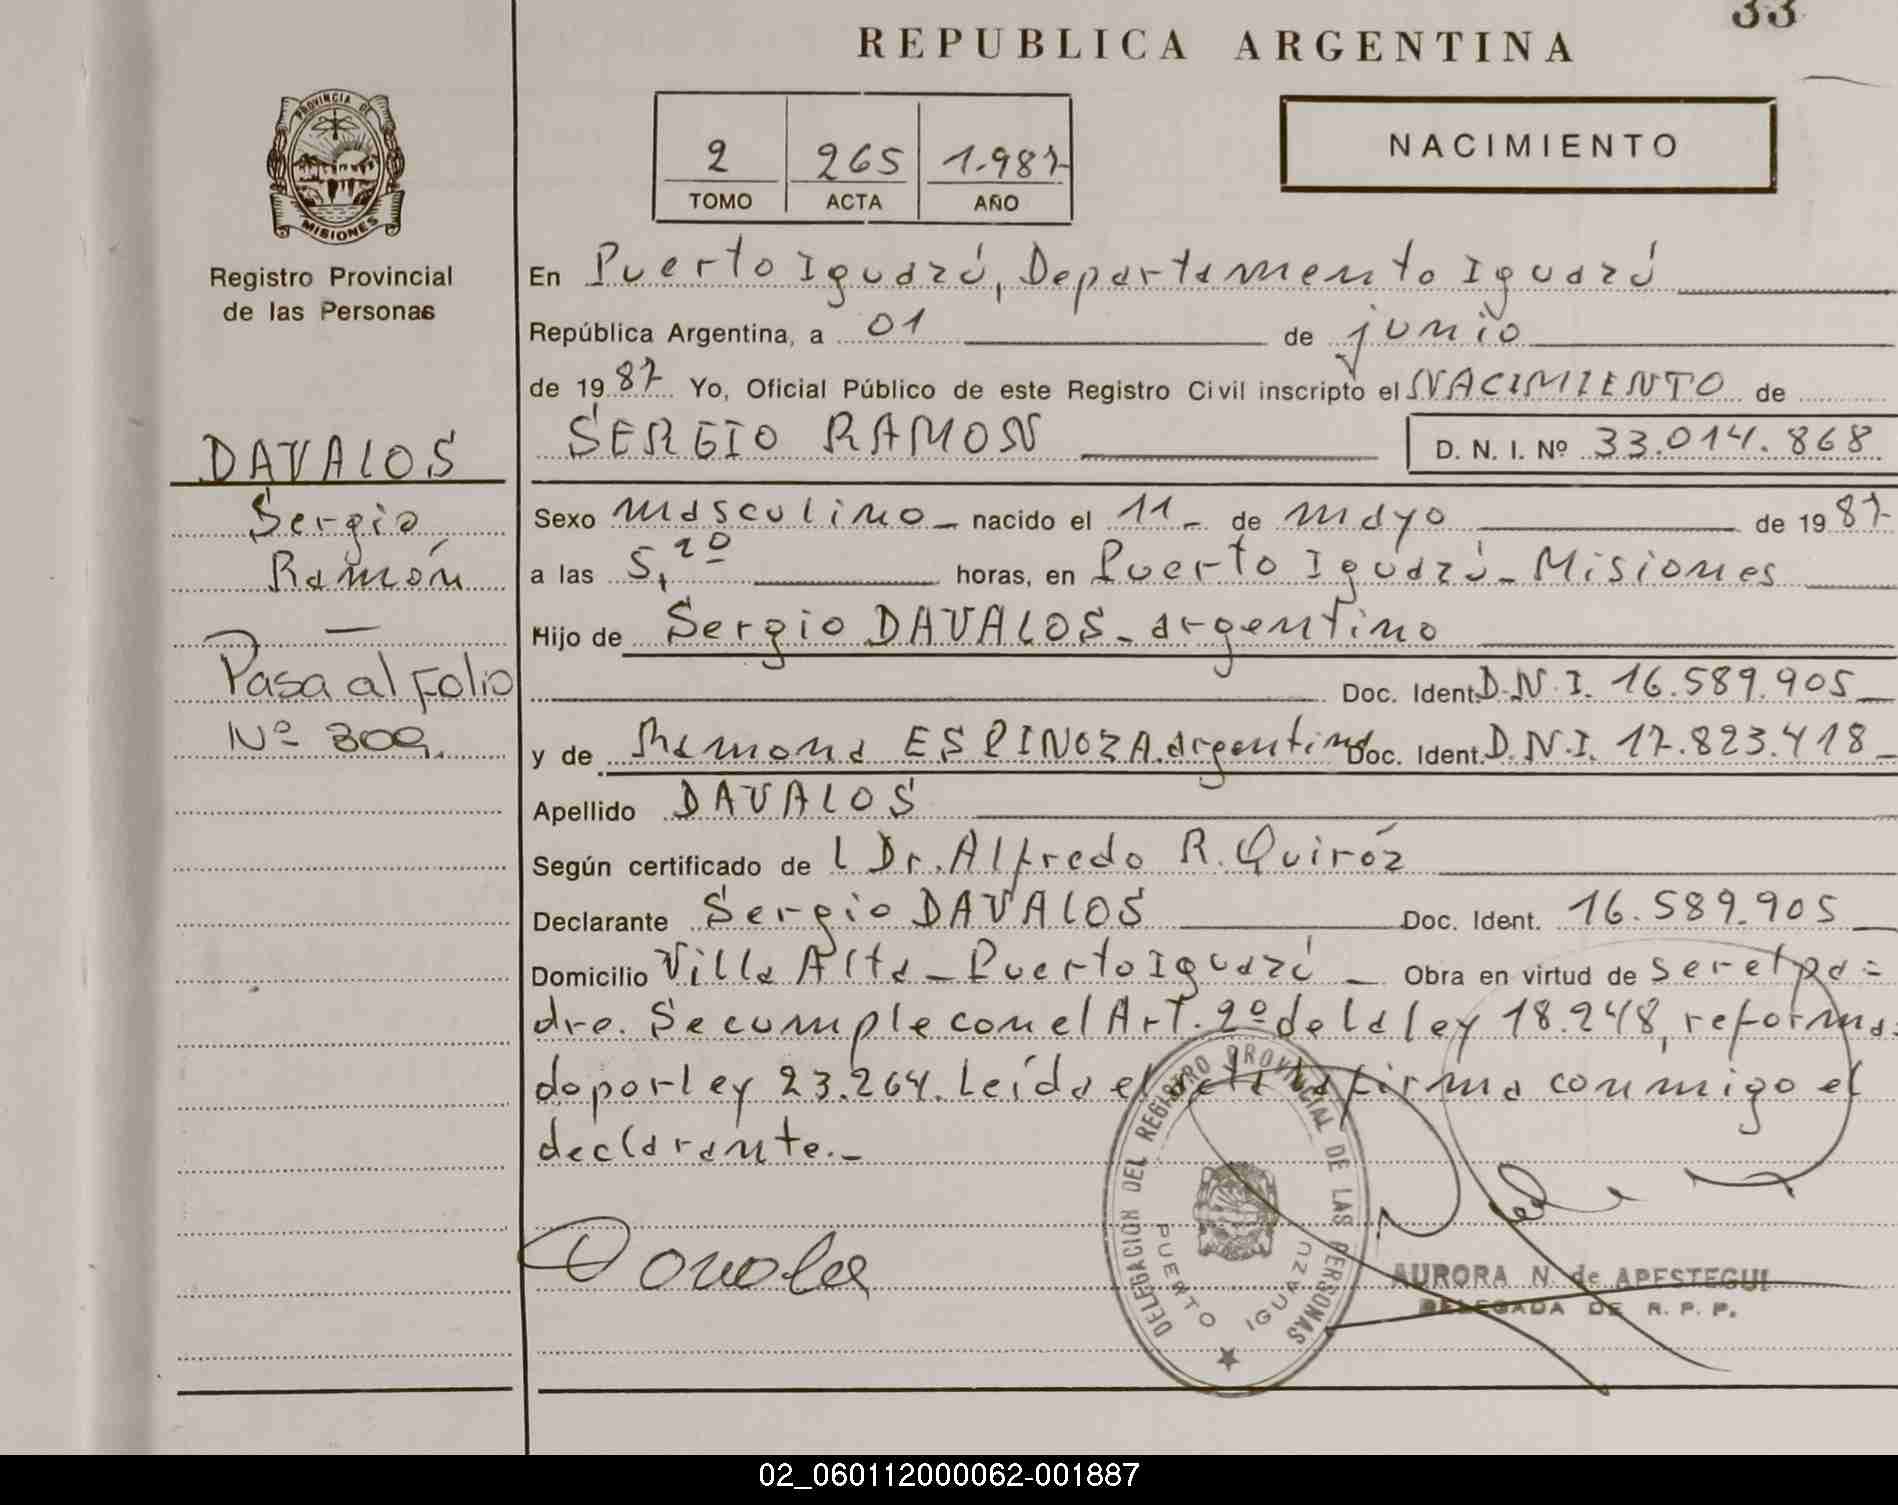 33
REPUBLICA ARGENTINA
NACIMIENTO
2 265 1.987
TOMO ACTA AÑO
PROVINCIA DE
MISIONES
Registro Provincial
de las Personas
En Puerto Iguazú, Departamento Iguazú
República Argentina, a 01 de junio
de 1987 Yo, Oficial Público de este Registro Civil inscripto el NACIMIENTO de
SERGIO RAMON D. N. I. Nº 33.014.868
DAVALOS
Sergio
Ramón
Pasa al folio
Nº 309.
Sexo masculino nacido el 11 de mayo de 1987
a las 5,20 horas, en Puerto Iguazú - Misiones
Hijo de Sergio DAVALOS - argentino
Doc. Ident. D.N.I. 16.589.905
y de Ramona ESPINOZA. argentina Doc. Ident. D.N.I. 17.823.418
Apellido DAVALOS
Según certificado de l Dr. Alfredo R. Quiróz
Declarante Sergio DAVALOS Doc. Ident. 16.589.905
Domicilio Villa Alta - Puerto Iguazú Obra en virtud de ser el pa=
dre. Se cumple con el Art. 2º de la ley 18.248, reforma=
do por ley 23.264. Leída el acta la firma conmigo el
declarante.-
DELEGACIÓN DEL REGISTRO PROVINCIAL DE LAS PERSONAS
PUERTO IGUAZU
AURORA N. de APESTEGUI
DELEGADA DE R. P. P.
02_060112000062-001887